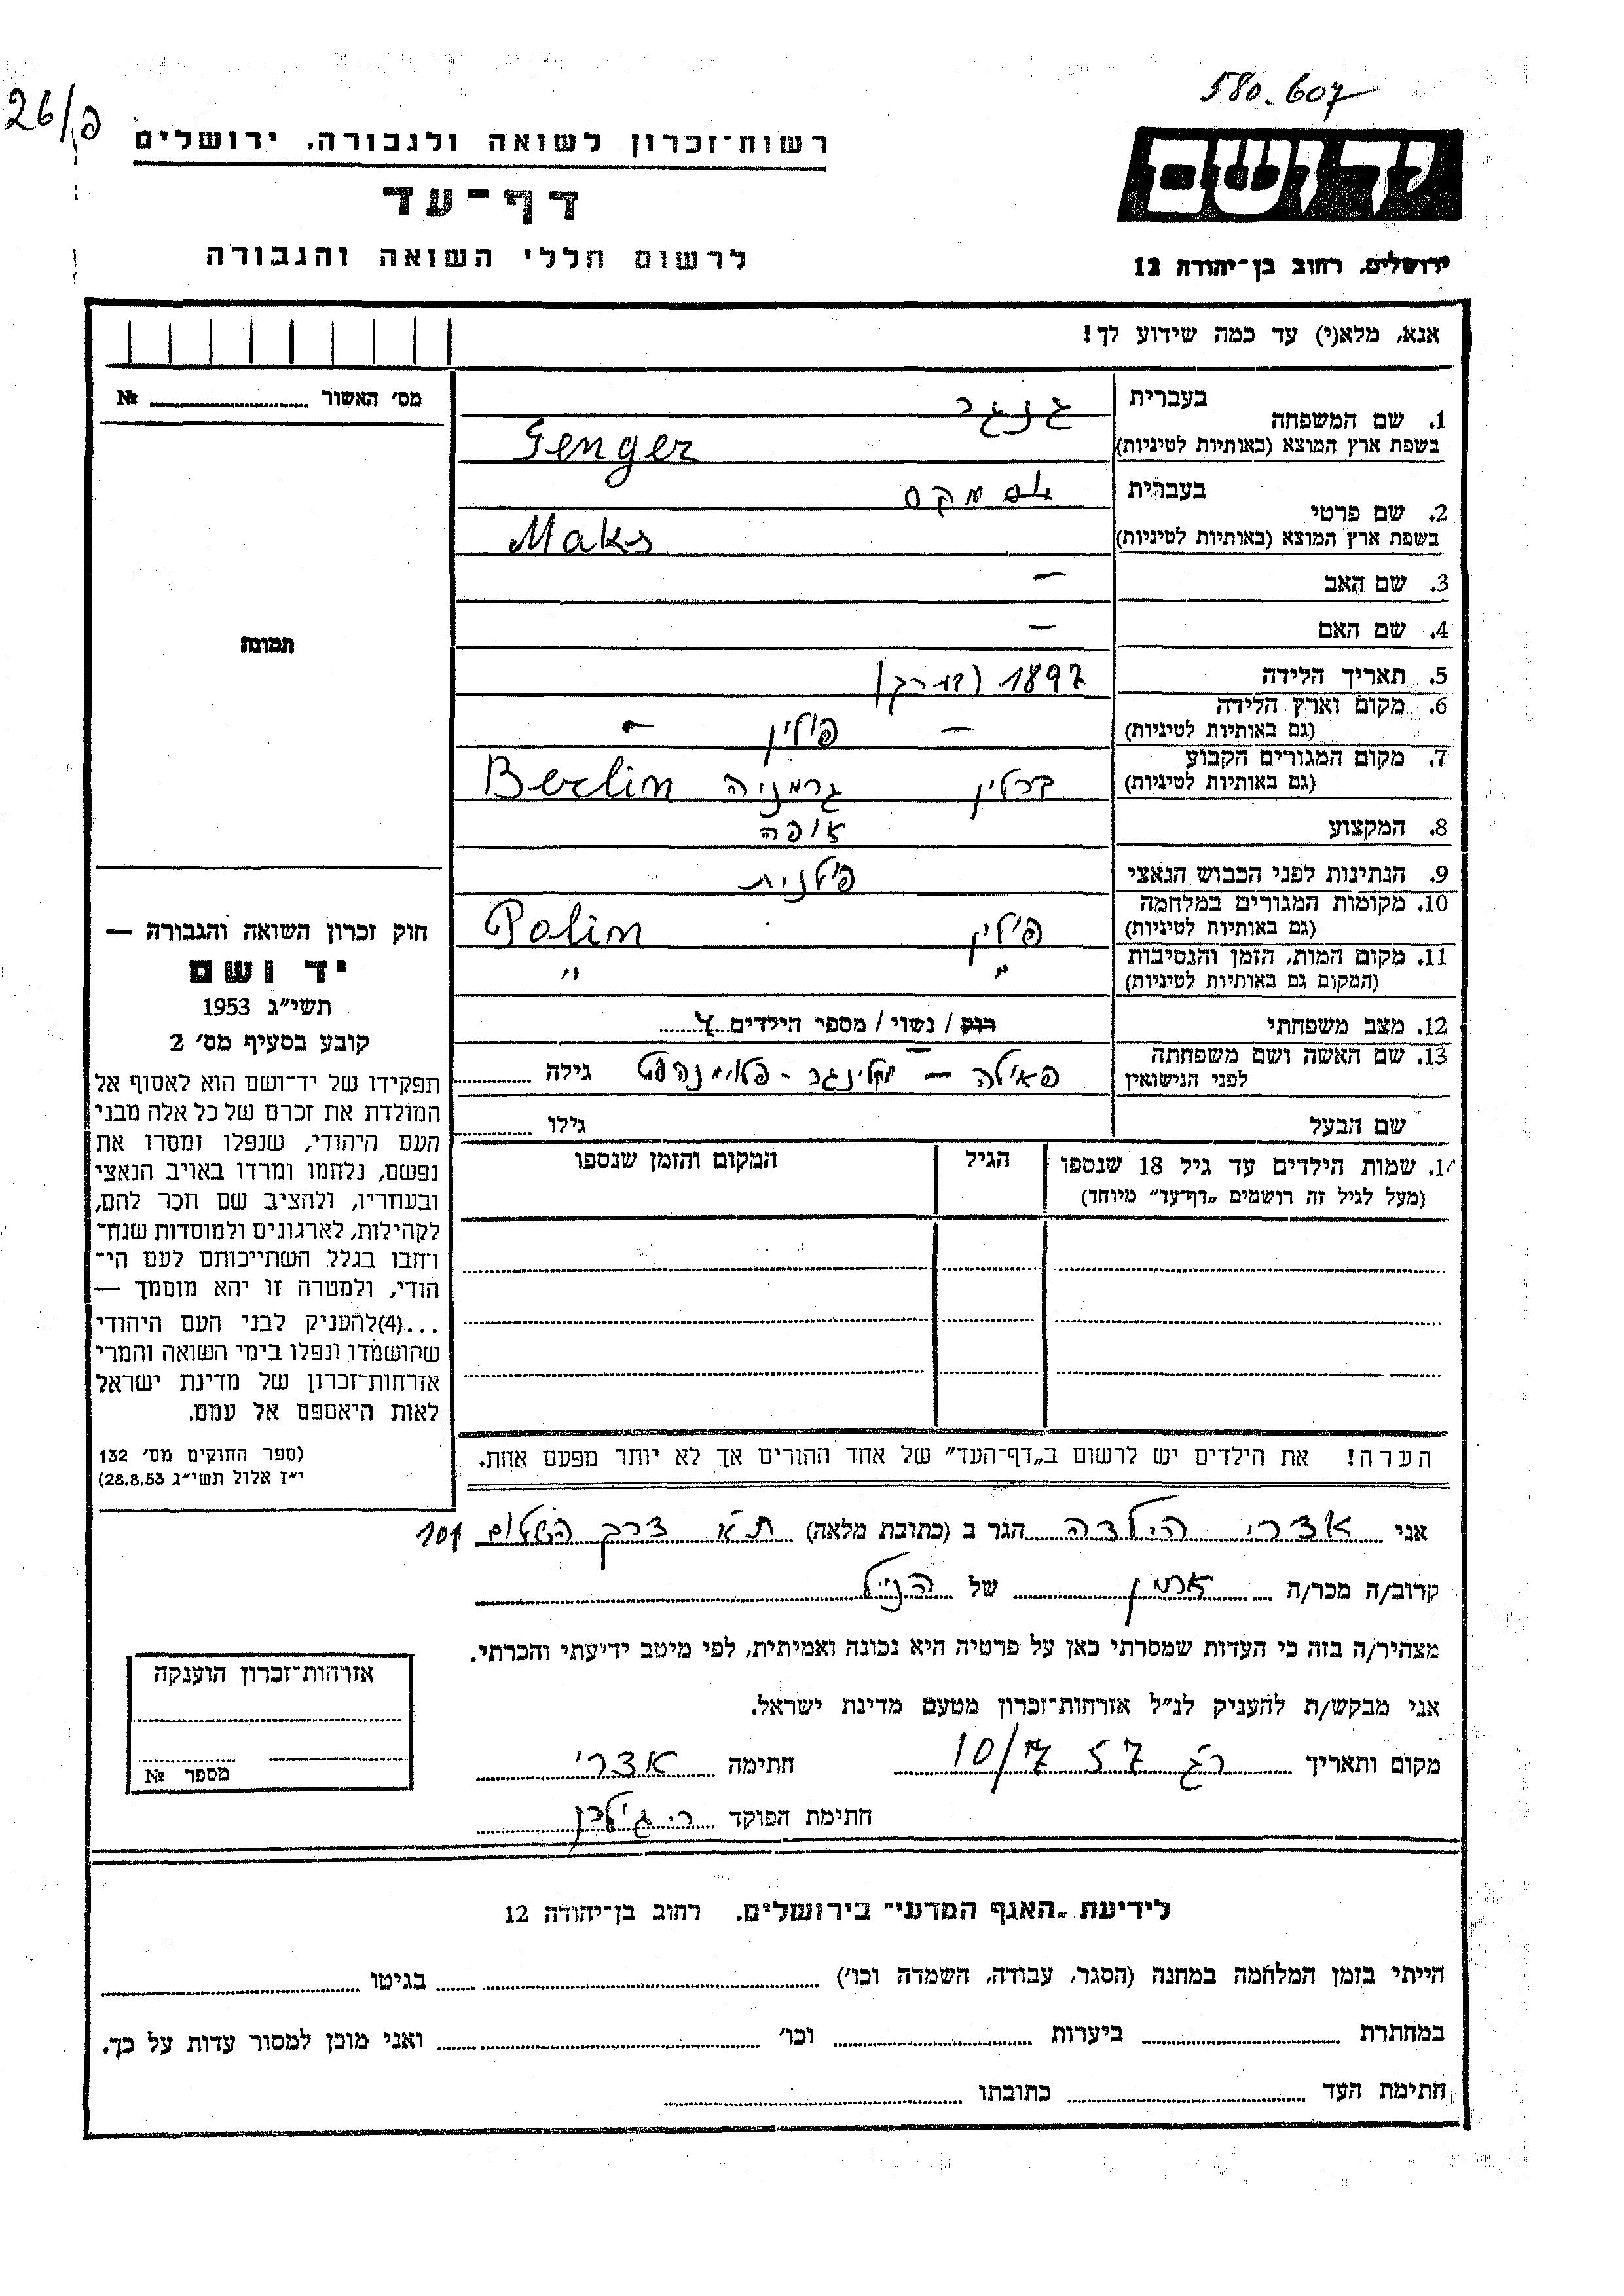 580.607
26/פ
רשות־זכרון לשואה ולגבורה, ירושלים
דף־עד
לרשום חללי השואה והגבורה
יד ושם
ירושלים, רחוב בן־יהודה 12
אנא, מלא(י) עד כמה שידוע לך!
מס' האשור № 
1. שם המשפחה
בעברית גנגר
בשפת ארץ המוצא (באותיות לטיניות) Genger
2. שם פרטי
בעברית מקס
בשפת ארץ המוצא (באותיות לטיניות) Maks
3. שם האב —
4. שם האם —
תמונה
5. תאריך הלידה 1897 (בערך)
6. מקום וארץ הלידה
(גם באותיות לטיניות) — פולין —
7. מקום המגורים הקבוע
(גם באותיות לטיניות) ברלין גרמניה Berlin
8. המקצוע אופה
9. הנתינות לפני הכבוש הנאצי פולנית
10. מקומות המגורים במלחמה
(גם באותיות לטיניות) פולין Polin
11. מקום המות, הזמן והנסיבות
(המקום גם באותיות לטיניות) " "
12. מצב משפחתי רוק / נשוי / מספר הילדים 4
13. שם האשה ושם משפחתה
לפני הנישואין פאולה — גילה
שם הבעל גילו
14. שמות הילדים עד גיל 18 שנספו הגיל המקום והזמן שנספו
(מעל לגיל זה רושמים „דף־עד" מיוחד)
חוק זכרון השואה והגבורה —
יד ושם
תשי״ג 1953
קובע בסעיף מס' 2
תפקידו של יד־ושם הוא לאסוף אל
המולדת את זכרם של כל אלה מבני
העם היהודי, שנפלו ומסרו את
נפשם, נלחמו ומרדו באויב הנאצי
ובעוזריו, ולהציב שם וזכר להם,
לקהילות, לארגונים ולמוסדות שנח־
רחבו בגלל השתייכותם לעם הי־
הודי, ולמטרה זו יהא מוסמך —
...(4)להעניק לבני העם היהודי
שהושמדו ונפלו בימי השואה והמרי
אזרחות־זכרון של מדינת ישראל
לאות היאספם אל עמם.
(ספר החוקים מס' 132
י״ז אלול תשי״ג 28.8.53)
הערה! את הילדים יש לרשום ב„דף־העד" של אחד ההורים אך לא יותר מפעם אחת.
אני אדרי הילדה הגר ב (כתובת מלאה) ת״א דרך השלום 101
קרוב/ה מכר/ה של הנ״ל
מצהיר/ה בזה כי העדות שמסרתי כאן על פרטיה היא נכונה ואמיתית, לפי מיטב ידיעתי והכרתי.
אני מבקש/ת להעניק לנ״ל אזרחות־זכרון מטעם מדינת ישראל.
מקום ותאריך ר״ג 10/7 57 חתימה אדרי
חתימת הפוקד
אזרחות־זכרון הוענקה
מספר №
לידיעת „האגף המדעי" בירושלים, רחוב בן־יהודה 12
הייתי בזמן המלחמה במחנה (הסגר, עבודה, השמדה וכו') בגיטו
במחתרת ביערות וכו' ואני מוכן למסור עדות על כך.
חתימת העד כתובתו